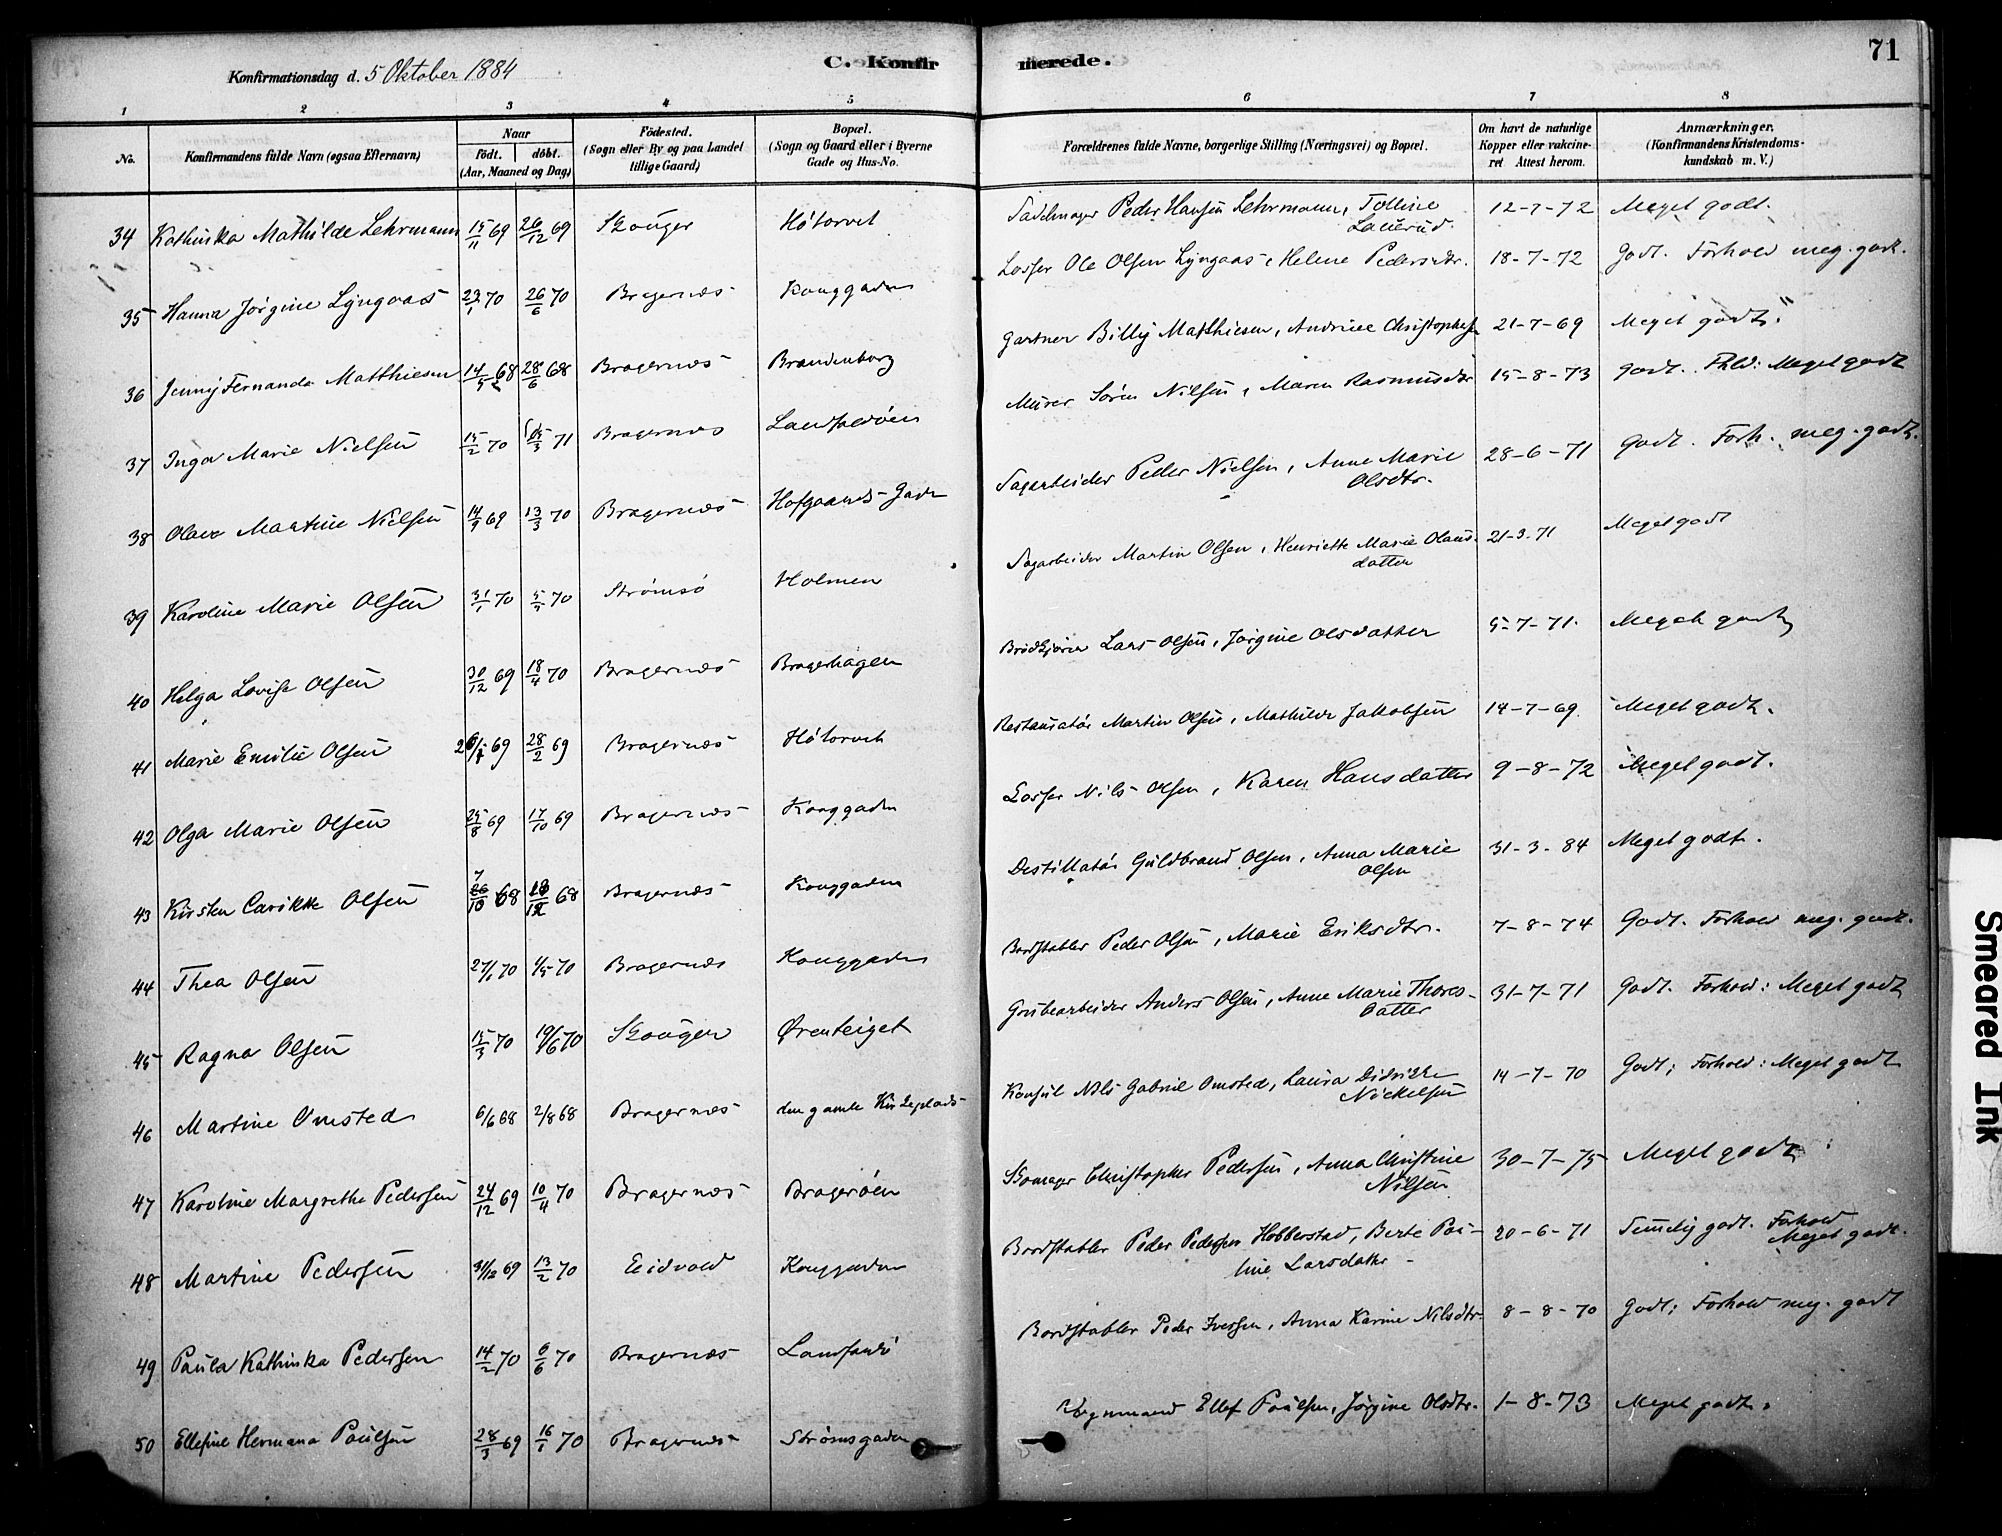 Konfirmationsdag d. 5 Oktober 1884
C. Konfirmerede.
71
1 2 3 4 5 6 7 8
No.
Konfirmandens fulde Navn (ogsaa Efternavn)
Naar
födt. döbt.
(Aar, Maaned og Dag)
Födested.
(Sogn eller By og paa Landet
tillige Gaard)
Bopæl.
(Sogn og Gaard eller i Byerne
Gade og Hus-No.
Forældrenes fulde Navne, borgerlige Stilling (Næringsvei) og Bopæl.
Om havt de naturlige
Kopper eller vakcine-
ret Attest herom.
Anmærkninger.
(Konfirmandens Kristendoms-
kundskab m. V.)
34 Kathinka Mathilde Lehrmann 15/11 69 26/12 69 Skouger Hötorvet Sadelmager Peder Hansen Lehrmann, Tolline Lauerud. 12-7-72 Meget godt.
35 Hanna Jörgine Lyngaas 23/1 70 26/6 70 Bragernæs Konggaden Losser Ole Olsen Lyngaas, Helene Pedersdtr. 18-7-72 Godt. Forhold meg. godt.
36 Jenny Fernanda Matthiesen 14/5 68 28/6 68 Bragernæs Brandenborg Gartner Billy Matthiesen, Andrine Christophersen 21-7-69 Meget godt.
37 Inga Marie Nielsen 15/2 70 15/3 71 Bragernæs Landfaldöen Murer Sören Nilsen, Maren Rasmusdtr 15-8-73 Godt. Fhld: Meget godt
38 Olava Martine Nielsen 14/9 69 13/3 70 Bragernæs Hofgaards-Gade Sagarbeider Peder Nielsen, Anne Marie Olsdtr. 28-6-71 Godt. Forh. meg. godt.
39 Karoline Marie Olsen 31/1 70 5/3 70 Strömsö Holmen Sagarbeider Martin Olsen, Henriette Marie Olausdatter 21-3-71 Meget godt
40 Helga Lovise Olsen 30/12 69 18/4 70 Bragernæs Bragerhagen Brödkjörer Lars Olsen, Jörgine Olsdatter 5-7-71. Meget godt
41 Marie Emilie Olsen 26/1 69 28/2 69 Bragernæs Hötorvet Restauratör Martin Olsen, Mathilde Jakobsen 14-7-69. Meget godt.
42 Olga Marie Olsen 25/8 69 17/10 69 Bragernæs Konggaden Losser Nils Olsen, Karen Hansdatter 9-8-72 Meget godt.
43 Kirsten Olsen 10 68 12 68 Bragernæs Konggaden Destillatör Guldbrand Olsen, Anna Marie Olsen 31-3-84 Meget godt.
44 Thea Olsen 27/1 70 1/5 70 Bragernæs Konggaden Bordstabler Peder Olsen, Marie Eriksdtr. 7-8-74 Godt. Forhold meg. godt.
45 Ragna Olsen 15/3 70 19/6 70 Skouger Örenteiget Grubearbeider Anders Olsen, Anne Marie Thoresdatter 31-7-71 Godt. Forhold: Meget godt
46 Martine Omsted 6/6 68 2/8 68 Bragernæs den gamle Kirkeplads Konsul Nils Gabriel Omsted, Laura Didrikke Nickelsen 14-7-70 Godt; Forhold: Meget godt
47 Karoline Margrethe Pedersen 24/12 69 10/4 70 Bragernæs Bragerøen Skomager Christopher Pedersen, Anna Christine Nilsen 30-7-75 Meget godt
48 Martine Pedersen 31/12 69 13/2 70 Eidvold Konggaden Bordstabler Peder Pedersen Hobberstad, Berte Pauline Larsdatter 20-6-71 Temelig godt. Forhold Meget godt.
49 Paula Kathinka Pedersen 14/2 70 6/6 70 Bragernæs Bordstabler Peder Iversen, Anna Karine Nilsdtr. 8-8-70 Godt; Forhold meg. godt
50 Ellefine Hermana Paulsen 28/3 69 16/1 70 Bragernæs Strömsgaden Vognmand Ellef Paulsen, Jörgine Olsdtr. 1-8-73 Meget godt.
Smeared Ink